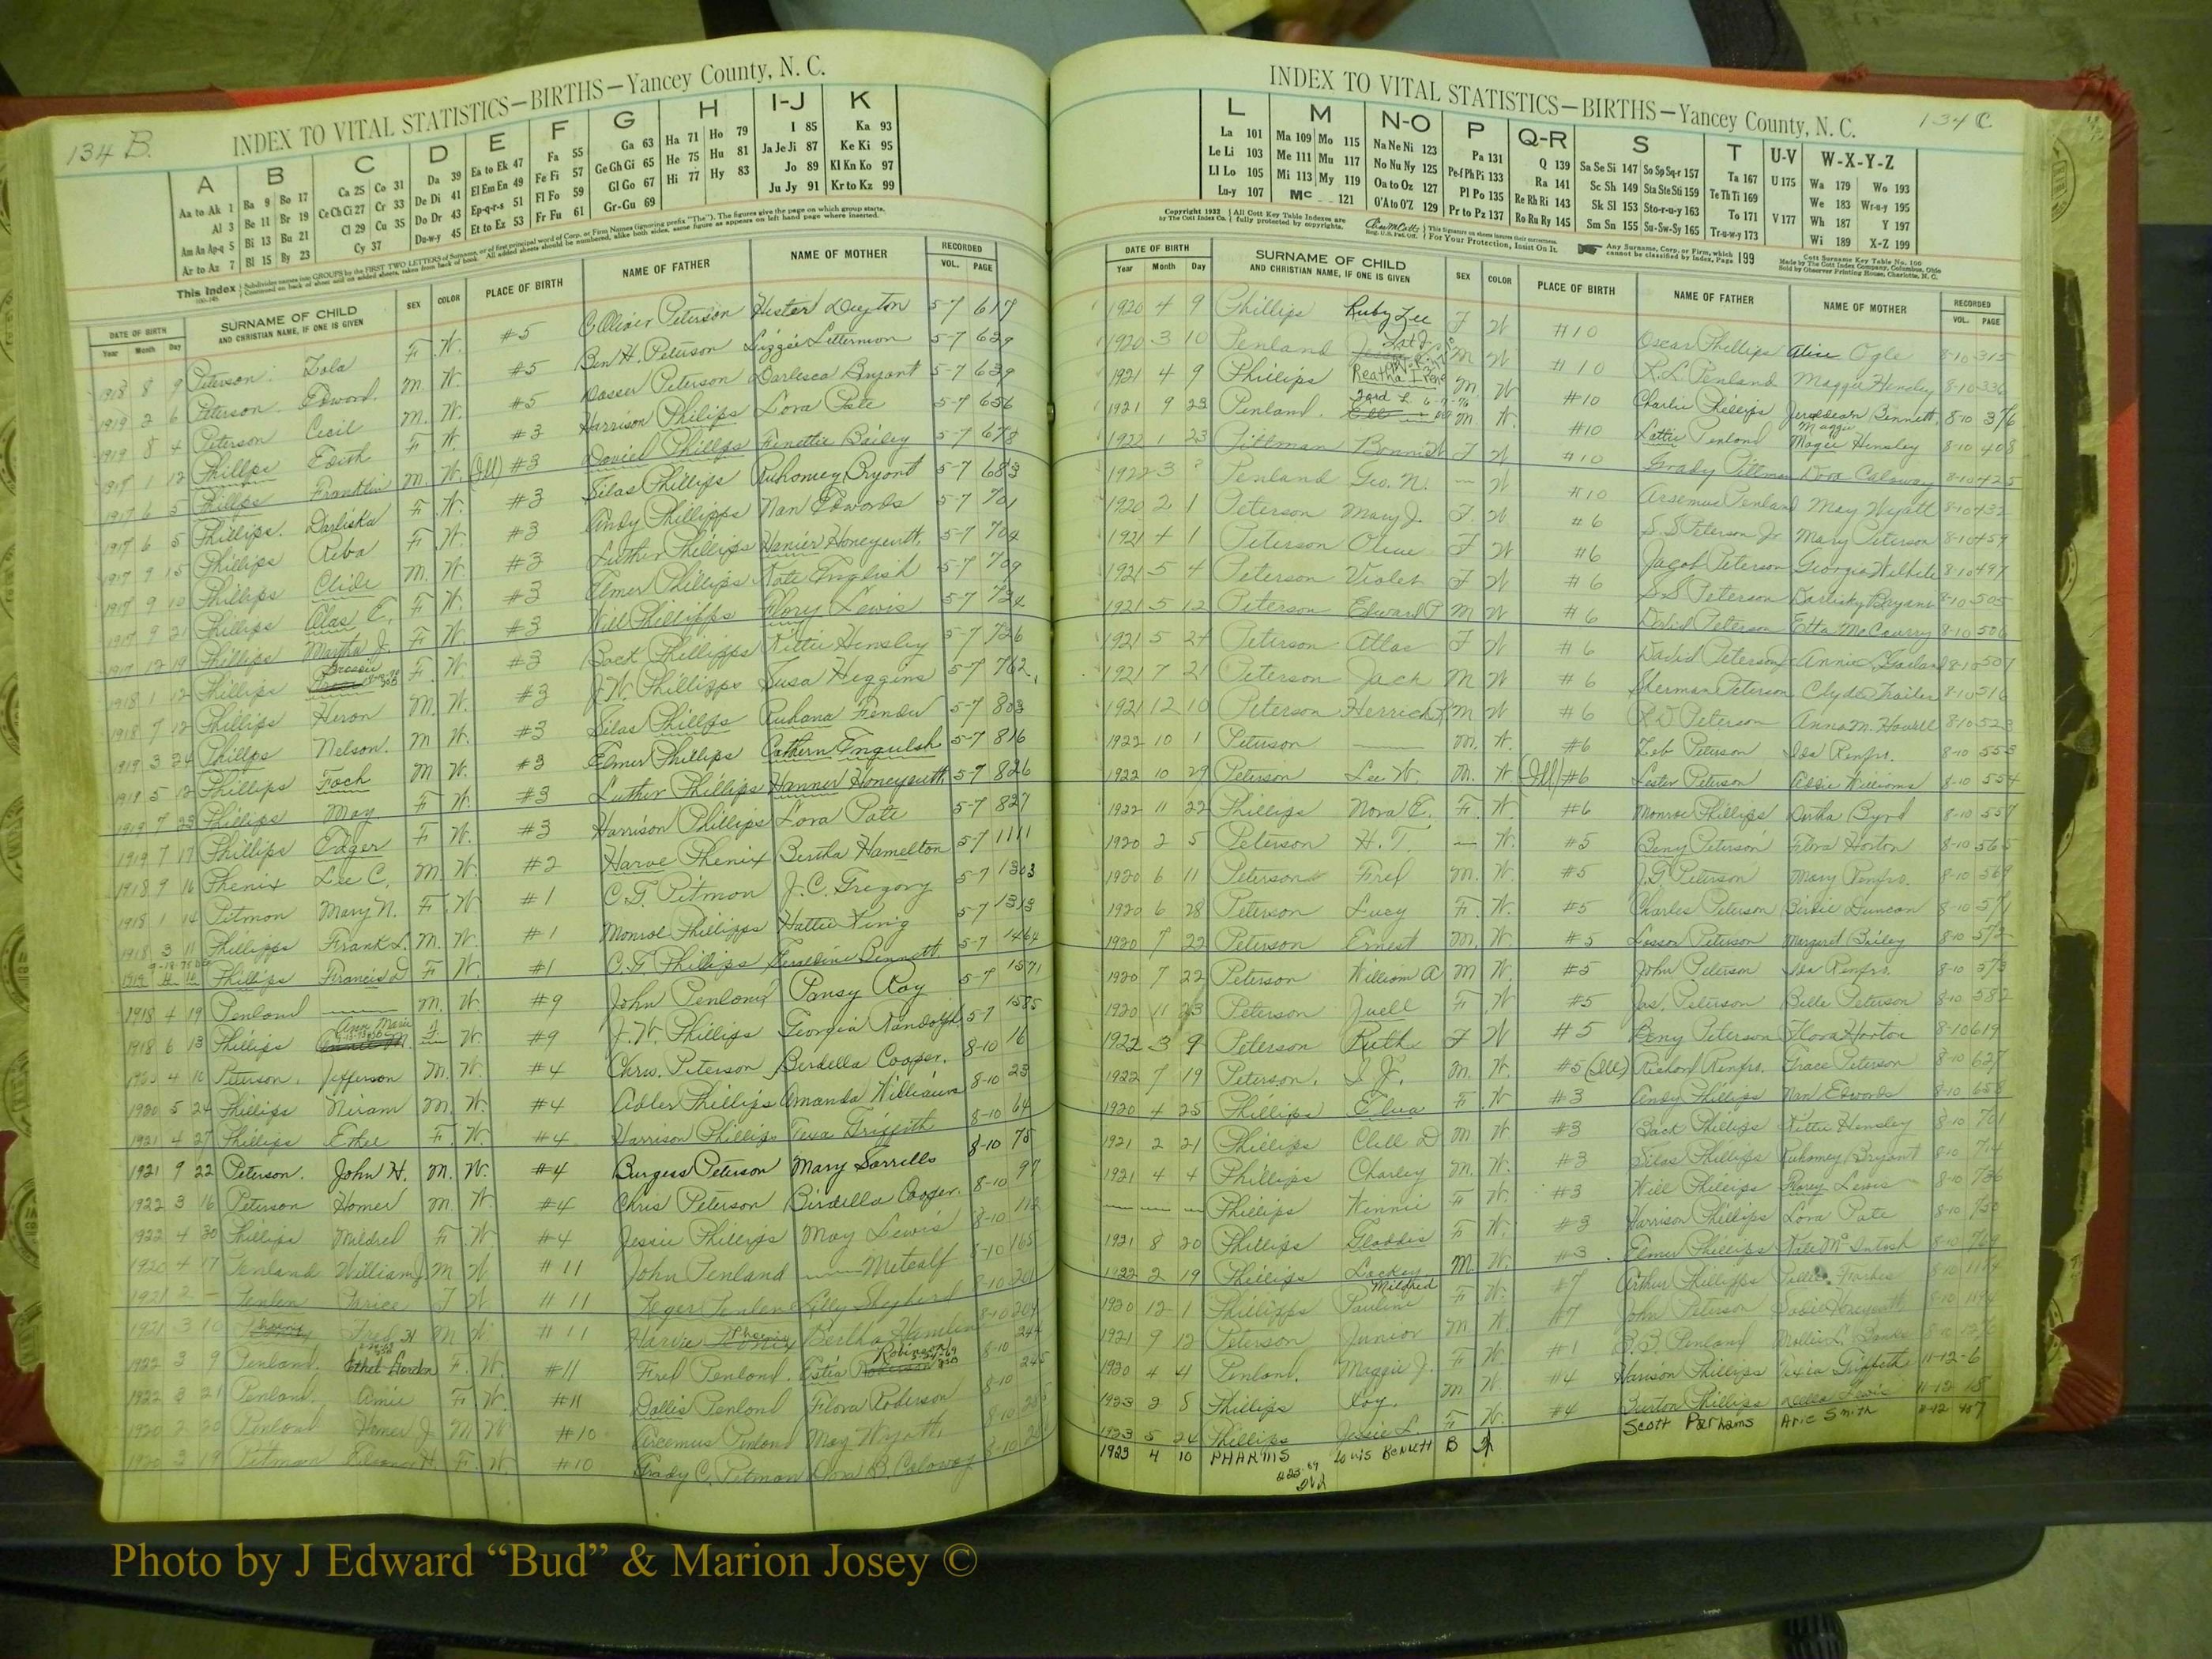 134 B.
INDEX TO VITAL STATISTICS—BIRTHS—Yancey County, N. C.
A B C D E F G H I-J K
Aa to Ak 1 Ba 9 Bo 17 Ca 25 Co 31 Da 39 Ea to Ek 47 Fa 55 Ga 63 Ha 71 Ho 79 I 85 Ka 93
Al 3 Be 11 Br 19 Ce Ch Ci 27 Cr 33 De Di 41 El Em En 49 Fe Fi 57 Ge Gh Gi 65 He 75 Hu 81 Ja Je Ji 87 Ke Ki 95
Am An Ap-q 5 Bi 13 Bu 21 Cl 29 Cu 35 Do Dr 43 Ep-q-r-s 51 Fl Fo 59 Gl Go 67 Hi 77 Hy 83 Jo 89 Kl Kn Ko 97
Ar to Az 7 Bl 15 By 23 Cy 37 Du-w-y 45 Et to Ez 53 Fr Fu 61 Gr-Gu 69 Ju Jy 91 Kr to Kz 99
DATE OF BIRTH SURNAME OF CHILD AND CHRISTIAN NAME, IF ONE IS GIVEN SEX COLOR PLACE OF BIRTH NAME OF FATHER NAME OF MOTHER RECORDED
Year Month Day VOL. PAGE
1918 8 9 Peterson. Zola F. W. #5 C. Oliver Peterson Hester Deyton 5-7 617
1919 2 6 Peterson. Edword. M. W. #5 Ben H. Peterson Lizzie Letterman 5-7 629
1919 8 4 Peterson Cecil M. W. #5 Dosser Peterson Darlesca Bryant 5-7 639
1917 1 12 Phillips Edith F. W. #3 Harrison Phillips Lora Pate 5-7 656
1917 6 5 Phillps Franklin M. W. (Ill) #3 Daniel Phillps Finettie Bailey 5-7 678
1917 6 5 Phillips. Darliska F. W. #3 Silas Phillips Ruhomey Bryont 5-7 683
1917 9 15 Phillips Reba F. W. #3 Andy Phillipps Nan Edwords 5-7 701
1917 9 10 Phillips Clide M. W. #3 Luther Phillips Hanier Honeycutt. 5-7 704
1917 9 21 Phillips Olas E. F. W. #3 Elmer Phillips Kate English 5-7 709
1917 12 19 Phillips Martha J. F. W. #3 Will Phillipps Flory Lewis 5-7 724
1918 1 12 Phillips Bessie F. W. #3 Back Phillipps Kittie Hensley 5-7 726
1918 7 12 Phillips Heron M. W. #3 J. W. Phillipps Susa Heggins 5-7 762
1919 3 24 Phillps Nelson. M W. #3 Silas Phillps Ruhana Fender 5-7 803
1919 5 12 Phillips Foch M W. #3 Elmer Phillips Cathern Engulsh 5-7 816
1919 7 23 Phillips May F W. #3 Luther Phillips Hanner Honeycutt 5-7 826
1919 7 17 Phillips Edger F W. #3 Harrison Phillips Lora Pate 5-7 827
1918 9 16 Phenix Lee C. M W. #2 Harve Phenix Bertha Hamelton 5-7 1111
1918 1 14 Pitmon Mary N. F. W #1 C. T. Pitmon J. C. Gregory 5-7 1303
1918 3 11 Phillipps Frank L. M. W. #1 Monroe Phillipps Hattie King 5-7 1313
Phillips Francis D F W. #1 C. F. Phillips Jereldine Bennett 5-7 1464
1918 4 19 Penland M. W. #9 John Penland Pansy Ray 5-7 1571
1918 6 13 Phillips Ann Marie F W. #9 J. W. Phillips Georgia Randolph 5-7 1585
1920 4 16 Peterson. Jefferson M. W. #4 Chris. Peterson Birdella Cooper. 8-10 16
1920 5 24 Phillips Niram M. W. #4 Adler Phillips Amanda Williams 8-10 23
1921 4 27 Phillips Ethel F. W. #4 Harrison Phillips Texa Griffith 8-10 64
1921 9 22 Peterson. John H. M. W. #4 Burgess Peterson Mary Sorrells 8-10 75
1922 3 16 Peterson Homer M W. #4 Chris Peterson Birdella Cooper. 8-10 97
1922 4 30 Phillips Mildred F W. #4 Jessie Phillips May Lewis 8-10 112
1920 4 17 Penland William J M W #11 John Penland Metcalf 8-10 165
1921 2 F W #11 Lilly Shepherd 8-10 201
1921 3 10 Phoenix Fred H M W. #11 Harvie Phoenix Bertha Hamlin 8-10 204
1922 3 9 Penland. Ethel Gordon F. W. #11 Fred Penland. Estia Robinson 8-10 244
1922 3 21 Penland. Amie F W. #11 Dallis Penlond Flora Roberson 8-10 245
1920 2 20 Penland Homer J M W #10 Arcemus Penlond May Wyatt. 8-10
1920 3 19 Pitman F. W. #10 Grady C. Pitman Dora B. Caloway 8-10
134 C.
INDEX TO VITAL STATISTICS—BIRTHS—Yancey County, N. C.
L M N-O P Q-R S T U-V W-X-Y-Z
La 101 Ma 109 Mo 115 Na Ne Ni 123 Pa 131 Q 139 Sa Se Si 147 So Sp Sq-r 157 Ta 167 U 175 Wa 179 Wo 193
Le Li 103 Me 111 Mu 117 No Nu Ny 125 Pe-f Ph Pi 133 Ra 141 Sc Sh 149 Sta Ste Sti 159 Te Th Ti 169 We 183 Wr-u-y 195
Ll Lo 105 Mi 113 My 119 Oa to Oz 127 Pl Po 135 Re Rh Ri 143 Sk Sl 153 Sto-r-u-y 163 To 171 V 177 Wh 187 Y 197
Lu-y 107 Mc 121 O'A to O'Z 129 Pr to Pz 137 Ro Ru Ry 145 Sm Sn 155 Su-Sw-Sy 165 Tr-u-w-y 173 Wi 189 X-Z 199
DATE OF BIRTH SURNAME OF CHILD AND CHRISTIAN NAME, IF ONE IS GIVEN SEX COLOR PLACE OF BIRTH NAME OF FATHER NAME OF MOTHER RECORDED
Year Month Day VOL. PAGE
1920 4 9 Phillips Ruby Lee F W #10 Oscar Phillips Alice Ogle 8-10 315
1920 3 10 Penland M W #10 R. L. Penland Maggie Hensley 8-10 336
1921 4 9 Phillips Reatha Irene M. W #10 Charlie Phillips Jereldean Bennett. 8-10 376
1921 9 23 Penland. Zard L. M W. #10 Lattie Penland Magie Hensley 8-10 408
1922 1 23 Pittman Bonnie F W #10 Grady Pittman Dora Caloway 8-10 425
1922 3 ? Penland Geo. N. — W #10 Arsemus Penland May Wyatt 8-10 432
1920 2 1 Peterson Mary J. F. W #6 S. S. Peterson Jr. Mary Peterson 8-10 459
1921 4 1 Peterson Olive F W #6 Jacob Peterson Georgia Wilhite 8-10 497
1921 5 4 Peterson Violet F W #6 S. S. Peterson Darlisky Bryant 8-10 505
1921 5 12 Peterson Edward P M W #6 David Peterson Etta McCourry 8-10 506
1921 5 24 Peterson Atlas F W #6 David Peterson Annie Garland 8-10 507
1921 7 21 Peterson Jack M W #6 Sherman Peterson Clyde Trailer 8-10 516
1921 12 10 Peterson Herrick M W #6 R. D. Peterson Anna M. Howell 8-10 523
1922 10 1 Peterson — M. W. #6 Zeb Peterson Ida Renfro. 8-10 553
1922 10 29 Peterson Lee W. M. W (Ill) #6 Lester Peterson Addie Williams 8-10 554
1922 11 22 Phillips Nora E. F. W. #6 Monroe Phillips Dertha Byrd 8-10 557
1920 2 5 Peterson H. T. — W. #5 Beny Peterson Flora Horton 8-10 565
1920 6 11 Peterson Fred M. W. #5 J. G. Peterson Mary Renfro. 8-10 569
1920 6 28 Peterson Lucy F. W. #5 Charles Peterson Birdie Duncan 8-10 571
1920 7 22 Peterson Ernest M. W #5 Losson Peterson Margaret Bailey 8-10 572
1920 7 22 Peterson William A M W. #5 John Peterson Ida Renfro. 8-10 573
1920 11 23 Peterson Juell F W #5 Jas. Peterson Belle Peterson 8-10 582
1922 3 9 Peterson Ruth F W #5 Beny Peterson Flora Horton 8-10 619
1922 7 19 Peterson. S. J. M. W. #5 (Ill) Richard Renfro. Grace Peterson 8-10 627
1920 4 25 Phillips Elva F. W #3 Andy Phillips Nan Edwords 8-10 658
1921 2 21 Phillips Clell D M W. #3 Back Phillips Kittie Hensley 8-10 701
1921 4 4 Phillips Charley M. W. #3 Silas Phillips Ruhomey Bryant 8-10 714
— — — Phillips Winnie F W. #3 Will Phillips Florey Lewis 8-10 736
1921 8 20 Phillips Gladdis F W. #3 Harrison Phillips Lora Pate 8-10 750
1922 2 19 Phillips Lackey M. W. #3. Elmer Phillips Kate McIntosh 8-10 769
1920 12 1 Phillipps Mildred Pauline F W. #7 Arthur Phillipps Pallie Forbes 8-10
1921 9 12 Peterson Junior M W. #7 John Peterson Honeycutt 8-10
1920 4 4 Penland. Maggie J. F W. #1 B. B. Penland Mollie L. Banks 8-10
1923 2 5 Phillips Roy. M W. #4 Harison Phillips Texia Griffeth 11-12-6
1923 5 24 Phillips Jessie L. F W. #4 Burton Phillips Lella Lewis 11-12 18
1923 4 10 PHARMS Louis Bennett B Scott Parhams Arie Smith 11-12 407
Photo by J Edward “Bud” & Marion Josey ©